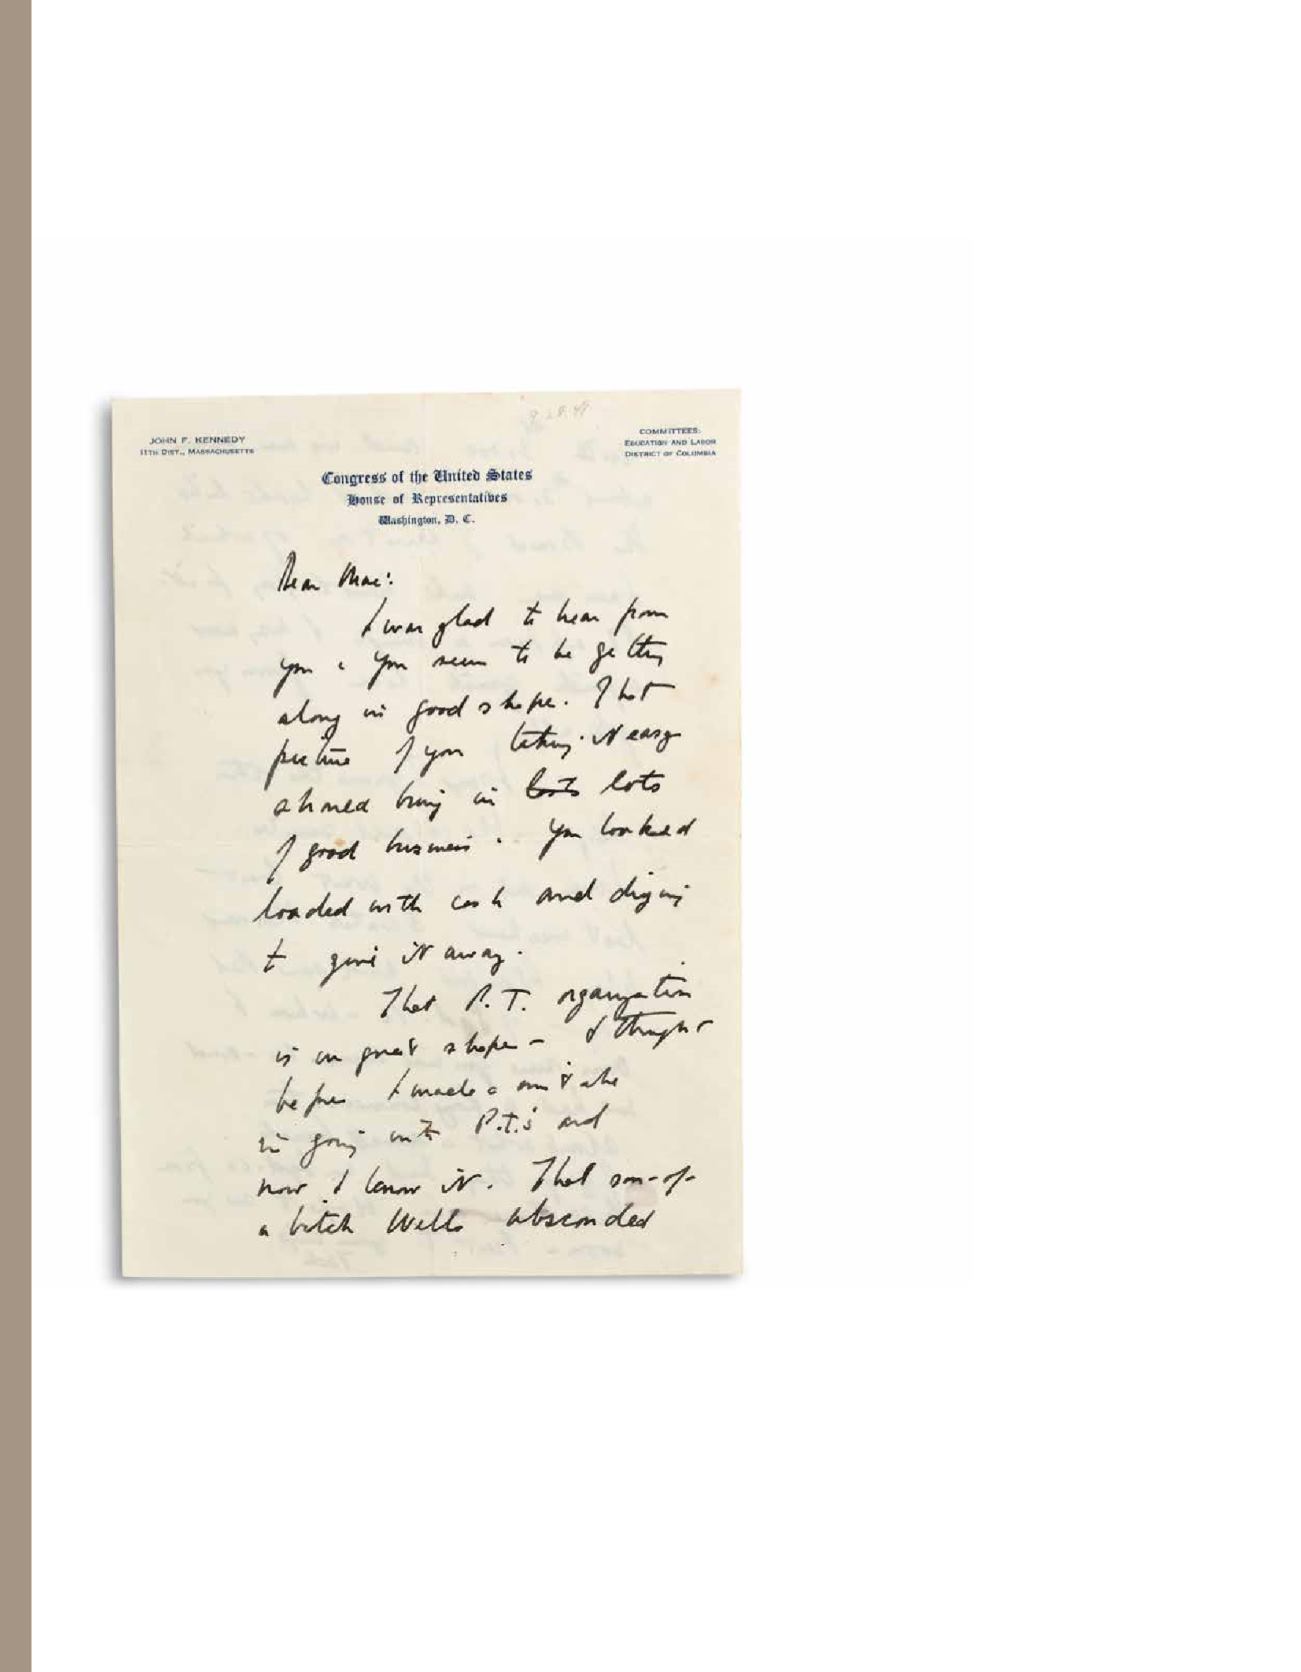 9-28-49
JOHN F. KENNEDY
11TH DIST., MASSACHUSETTS
COMMITTEES:
EDUCATION AND LABOR
DISTRICT OF COLUMBIA
Congress of the United States
House of Representatives
Washington, D. C.
Dear Mac:
I was glad to hear from
you & you seem to be getting
along in good shape. That
picture of you taking it easy
should bring in lots lots
of good business. You looked
loaded with cash and
to give it away.
That P.T. organization
is in great shape - I thought
before I made a mistake
in going into P.T.'s and
now I know it. That son-of-
a bitch Wells absconded